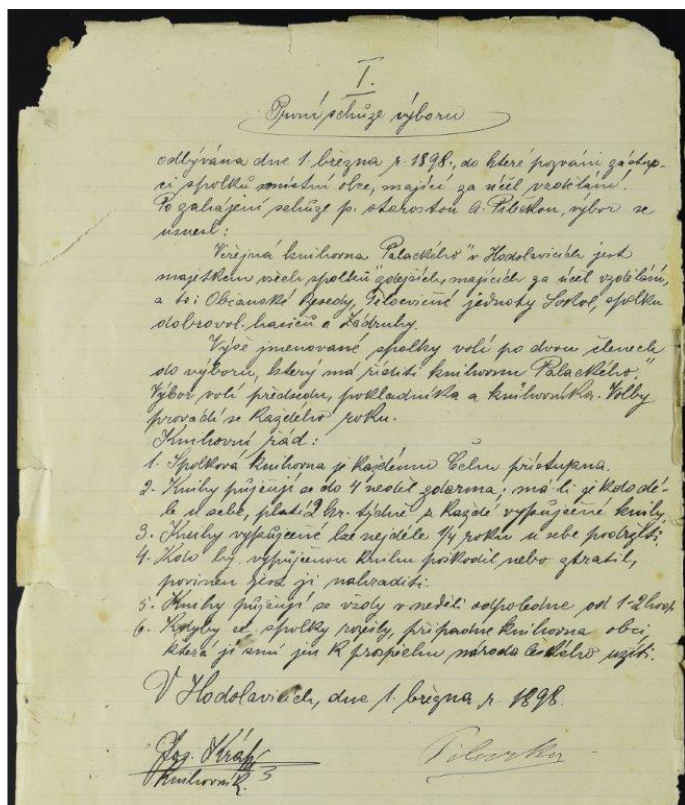 I.
První schůze výboru
odbývána dne 1. března r. 1898, do které pozváni zástup-
ci spolků místní obce, mající za účel vzdělání.
Po zahájení schůze p. starostou A. Pileckou, výbor se
usnesl:
Veřejná knihovna "Palackého" v Hodslavicích jest
majetkem všech spolků zdejších, majících za účel vzdělání,
a to: Občanské Besedy, Tělocvičné jednoty Sokol, spolku
dobrovol. hasičů a Záduhy.
Výše jmenované spolky volí po dvou členech
do výboru, který má říditi knihovnu "Palackého."
Výbor volí předsedu, pokladníka a knihovníka. Volby
provádí se každého roku.
Knihovní řád:
1. Spolková knihovna je každému Čechu přístupna.
2. Knihy půjčují se do 4 neděl zdarma; má-li je kdo dé-
le u sebe, platí 2 kr. týdně z každé vypůjčené knihy.
3. Knihy vypůjčené lze nejdéle 1/4 roku u sebe podržeti.
4. Kdo by vypůjčenou knihu poškodil nebo ztratil,
povinen jest ji nahraditi.
5. Knihy půjčují se vždy v neděli odpoledne od 1-2 hod.
6. Kdyby se spolky rozešly, připadne knihovna obci,
která jí smí jen k prospěchu národa českého užíti.
V Hodslavicích, dne 1. března r. 1898.
Jos. Král
knihovník.